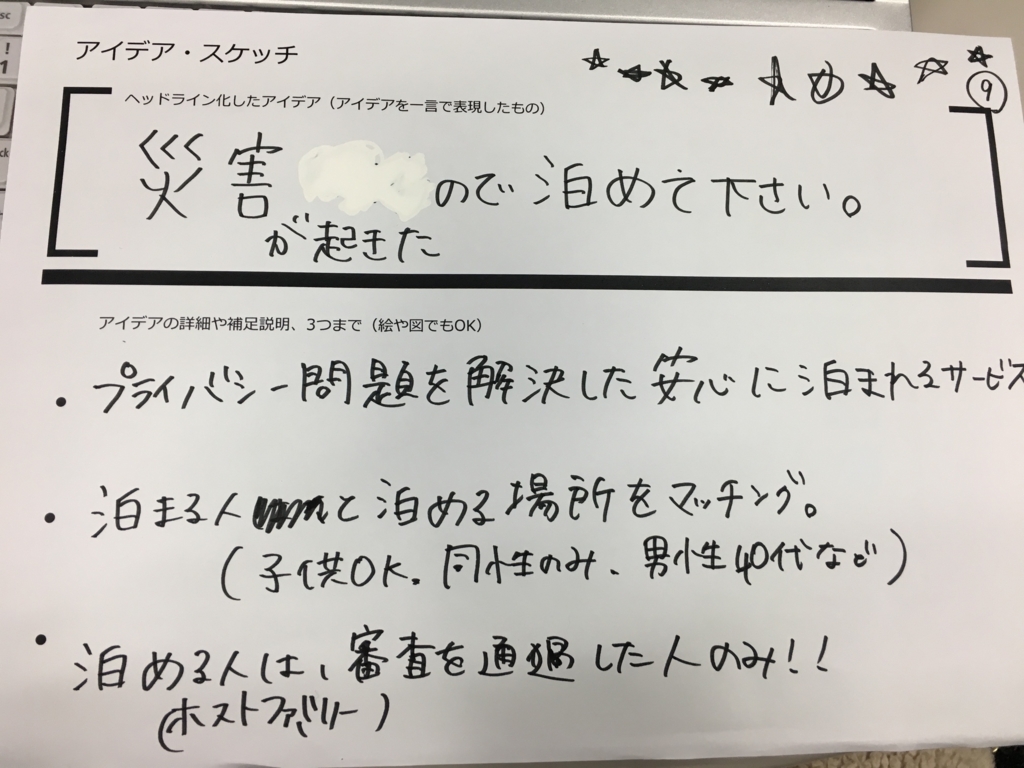 アイデア・スケッチ
☆
め ☆ ☆ ☆
⑨
ヘッドライン化したアイデア（アイデアを一言で表現したもの）
災害 ので泊めて下さい。
が起きた
アイデアの詳細や補足説明、3つまで（絵や図でもOK）
・プライバシー問題を解決した安心に泊まれるサービス
・泊まる人と泊める場所をマッチング。
（子供OK、同性のみ、男性40代など）
・泊める人は、審査を通過した人のみ！！
（ホストファミリー）